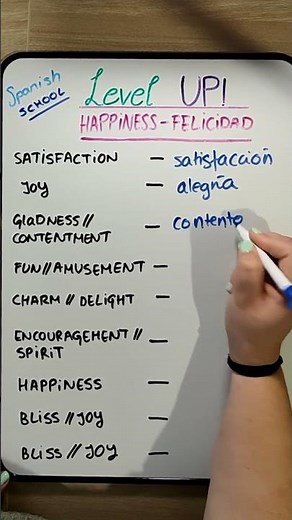 Spanish
SCHOOL
Level UP!
HAPPINESS - FELICIDAD
SATISFACTION — satisfacción
JOY — alegría
GlaDNESS// — contento
CONTENTMENT
FUN//AMUSEMENT —
CHARM // DELIGHT —
ENCOURAGEMENT // —
SPIRIT
HAPPINESS —
BLISS // JOY —
BLISS // JOY —